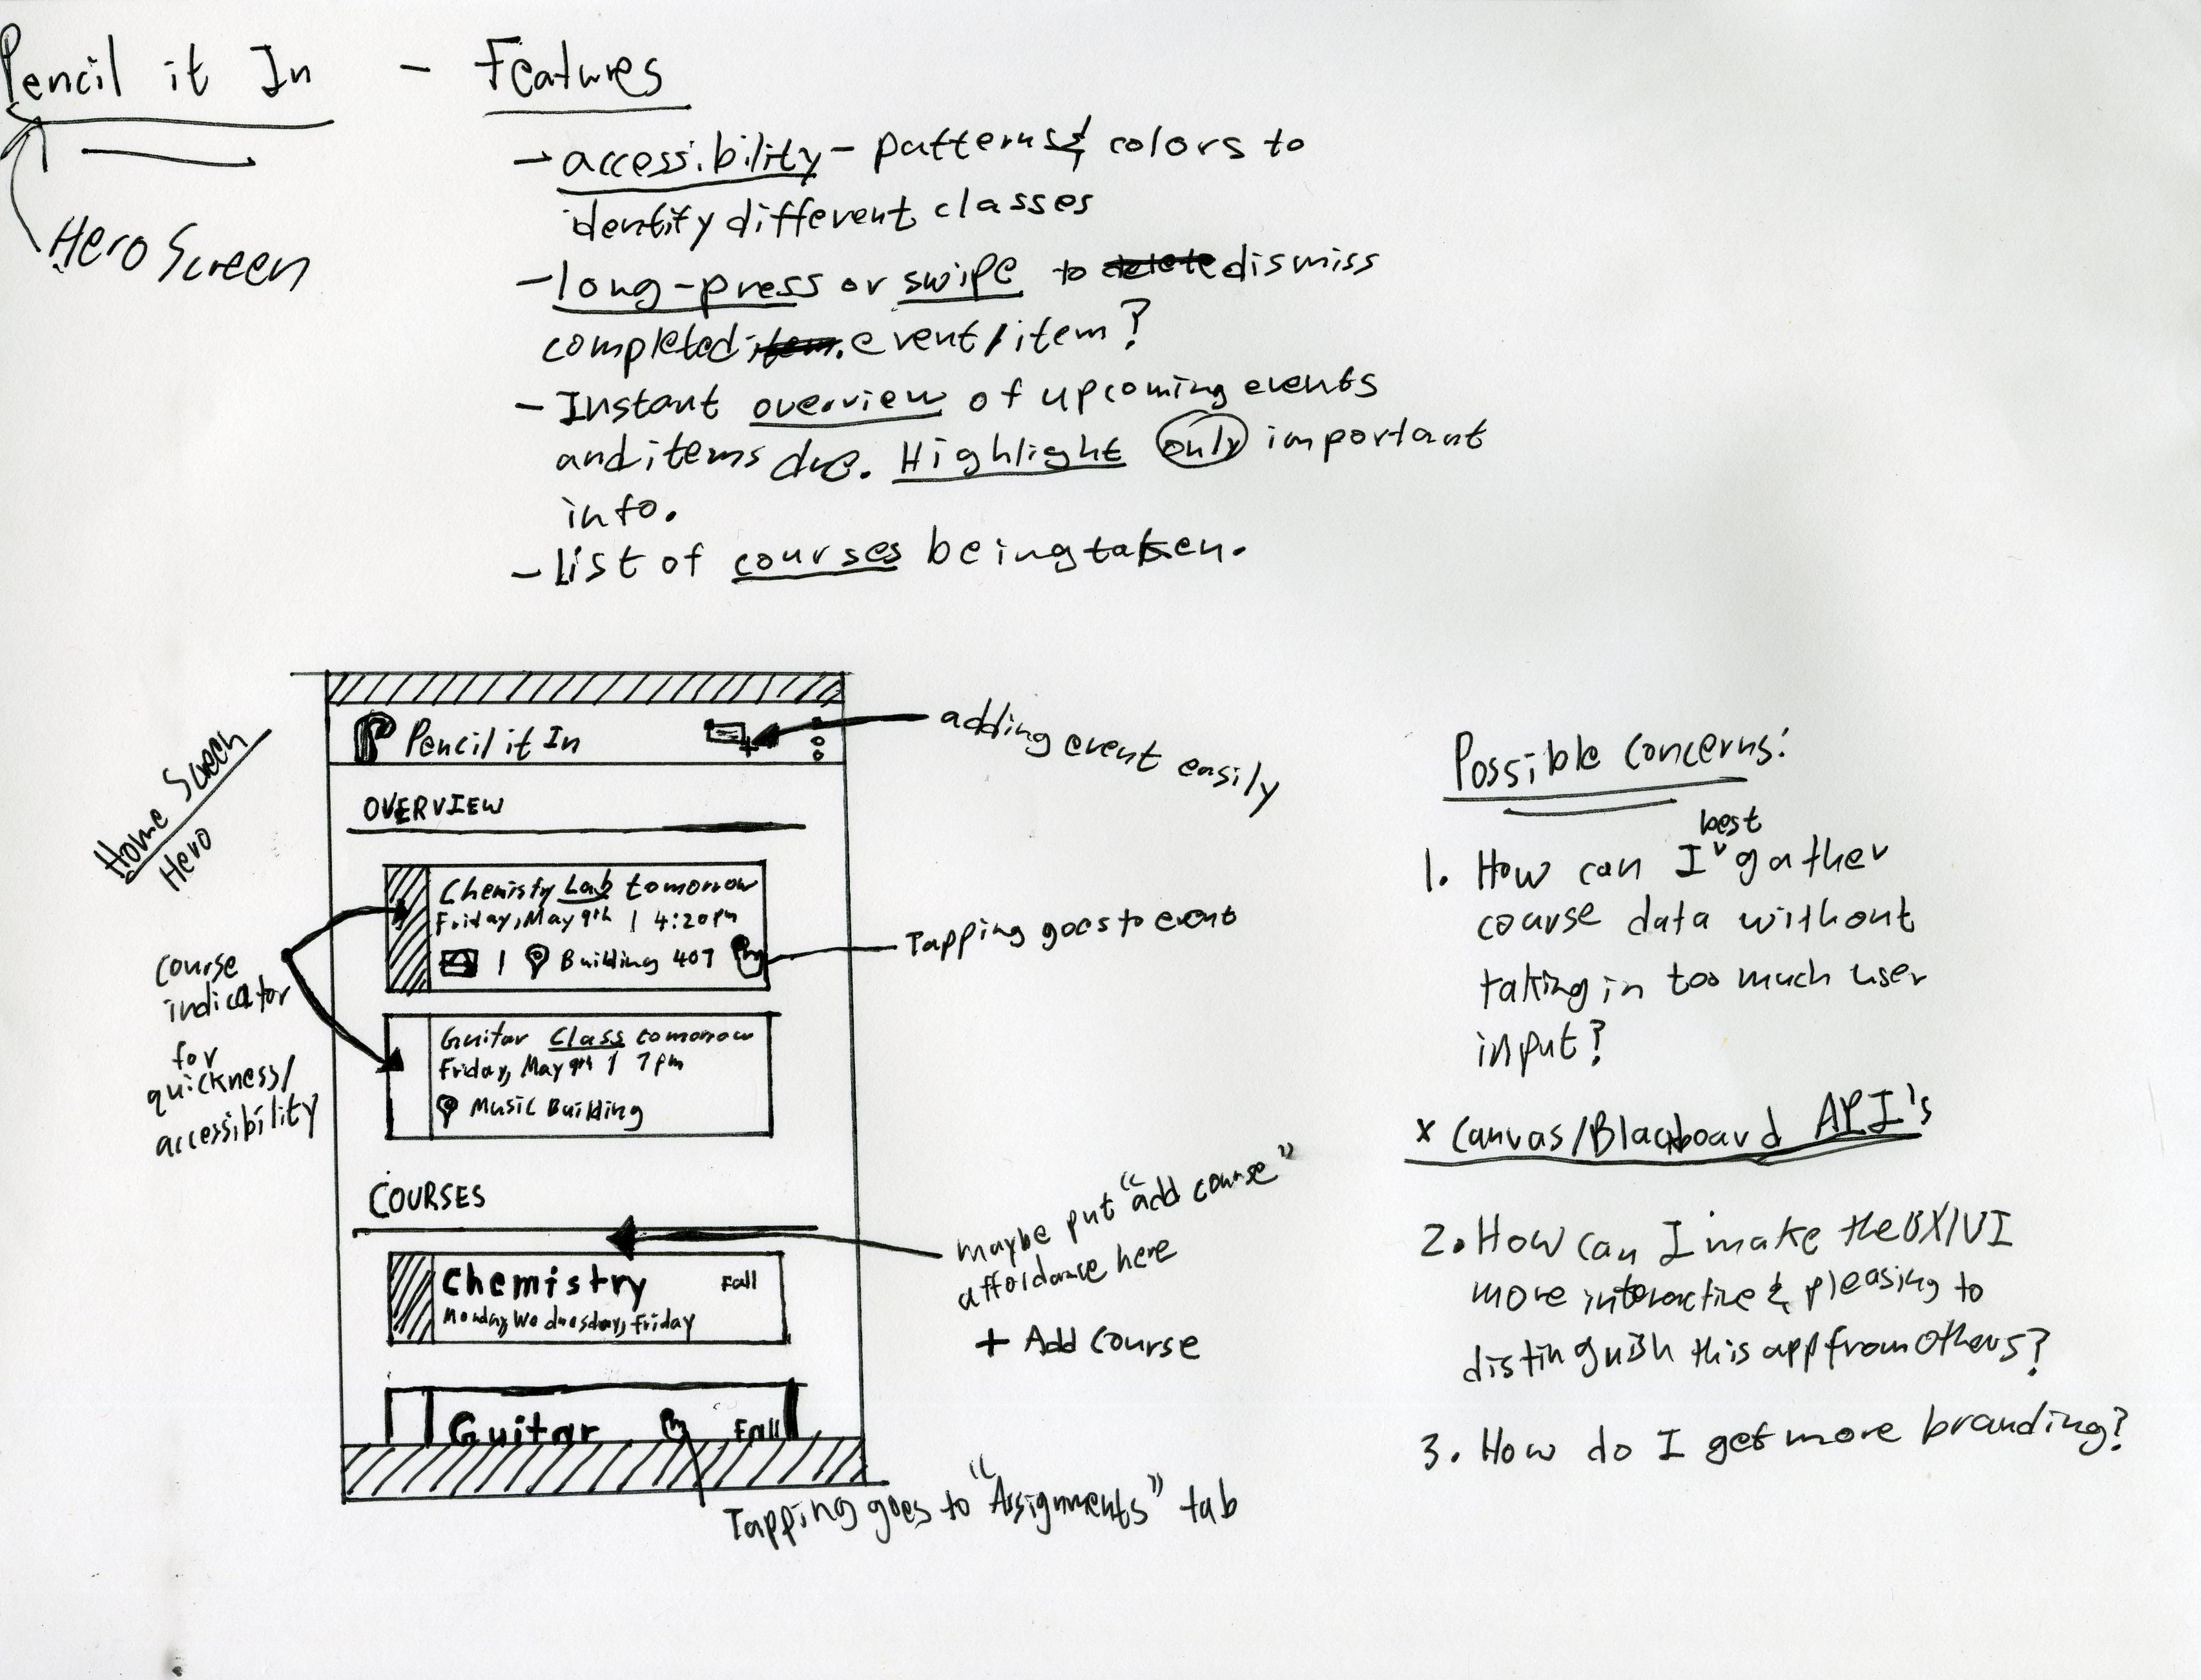 Pencil it In - Features
Hero Screen
- accessibility - patterns & colors to
identify different classes
- long-press or swipe to delete dismiss
completed item. event/item?
- Instant overview of upcoming events
and items due. Highlight only important
info.
- list of courses being taken.
Home Screen
Hero
Pencil it In
adding event easily
OVERVIEW
Chemisty Lab tomorrow
Friday, May 9th | 4:20pm
| Building 407
Tapping goes to event
course
indicator
for
quickness/
accessibility
Guitar Class tomorrow
Friday, May 9th | 7pm
Music Building
COURSES
maybe put "add course"
affordance here
+ Add Course
Chemistry Fall
Monday, Wednesday, Friday
Guitar Fall
Tapping goes to "Assignments" tab
Possible Concerns:
best
1. How can I v gather
course data without
taking in too much user
input?
x Canvas/Blackboard API's
2. How can I make the UX/UI
more interactive & pleasing to
distinguish this app from others?
3. How do I get more branding?